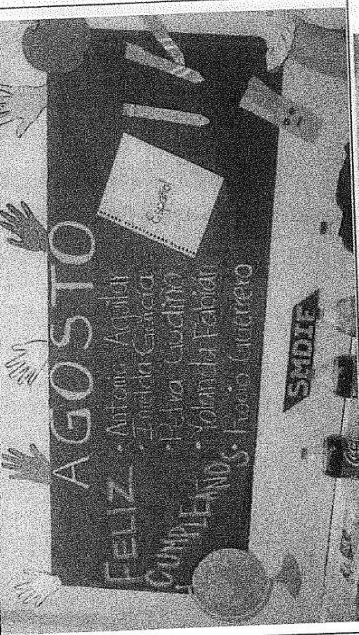 AGOSTO
FELIZ
CUMPLEAÑOS
• Antonia Aguilar
• Imelda García
• Petra Gudino
• Yolanda Fabián
• Rocio Guerrero
Español
SMDIF